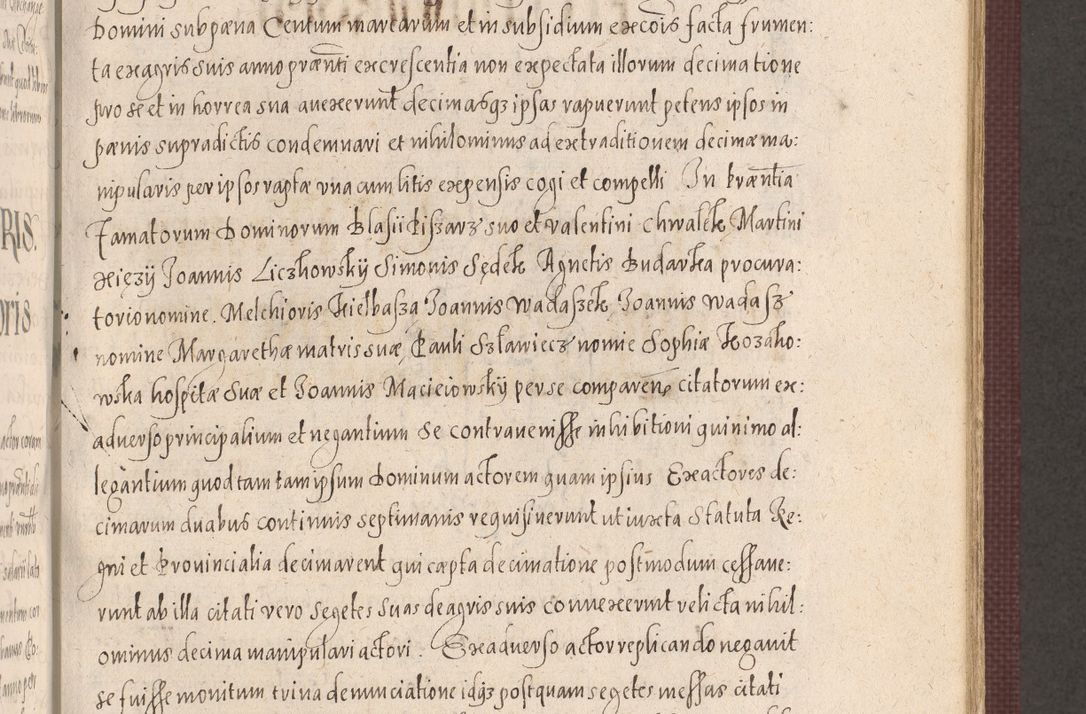 Domini sub pœna Centum marcarum et in subsidium excois facta frumen:
ta ex agris suis anno prænti excrescentia non expectata illorum decimatione
pro se et in horrea sua auexerunt decimasqz ipsas rapuerunt petens ipsos in
pœnis supradictis condemnari et nihilominus ad extraditionem decimæ ma:
nipularis per ipsos raptæ vna cum litis expensis cogi et compelli In præntia
Famatorum Dominorum Blasii Piszarz suo et valentini Chwalek Martini
Xięzÿ Joannis Liczkowskÿ Simonis Sędek Agnetis Budarka procura:
torio nomine. Melchioris Kielbasza Joannis Wadaszek, Joannis Wadasz
nomine Margarethæ matris suæ, Pauli Szławiecz nomie Sophiæ Kozako:
wska hospitæ suæ et Joannis Macieiowskÿ per se comparen citatorum ex:
aduerso principalium et negantium se contrauenisse inhibitioni quinimo al:
legantium quod tam tam ipsum Dominum actorem quam ipsius Exactores de:
cimarum duabus continuis septimanis requisiuerunt ut iuxta Statuta Re:
gni et Prouincialia decimarent qui cæpta decimatione postmodum cessaue:
runt ab illa citati vero segetes suas de agris suis conuexerunt relicta nihil:
ominus decima manipulari actori. Ex aduerso actor replicando negauit
se fuisse monitum trina denunciatione idqz postquam segetes messas citati